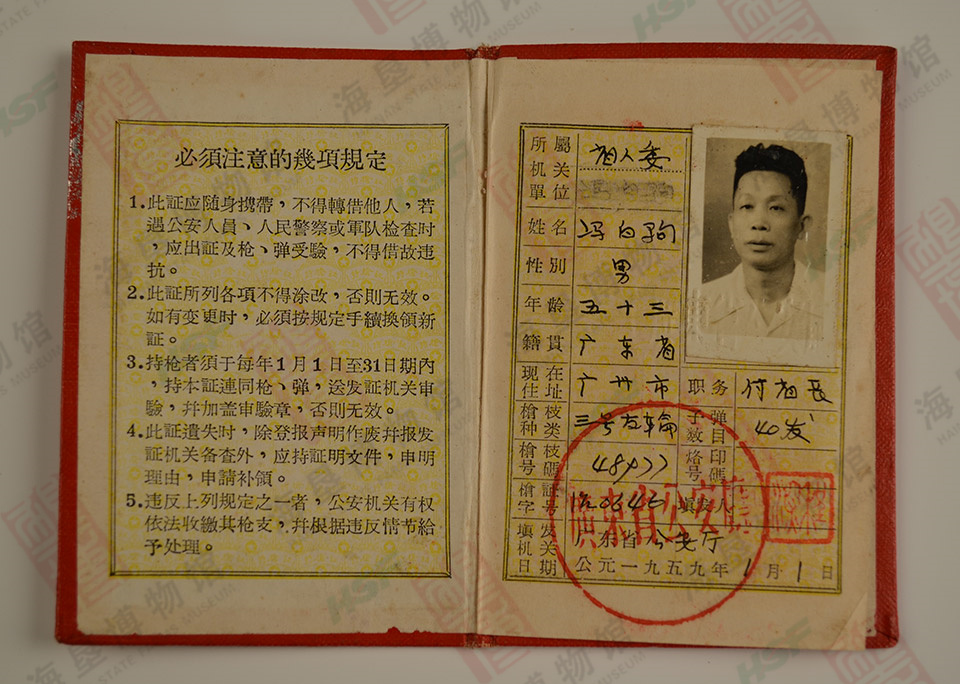 必須注意的幾項規定
1.此証应随身携帶，不得轉借他人，若
遇公安人員、人民警察或軍队检查时
，应出証及枪、弹受驗，不得借故违
抗。
2.此証所列各項不得涂改，否則无效。
如有变更时，必須按規定手續換領新
証。
3.持枪者須于每年1月1日至31日期內
，持本証連同枪、弹，送发証机关审
驗，幷加盖审驗章，否則无效。
4.此証遺失时，除登报声明作废幷报发
証机关备查外，应持証明文件，申明
理由，申請补領。
5.违反上列規定之一者，公安机关有权
依法收繳其枪支，幷根据违反情节給
予处理。
所屬机关單位 省人委
姓名 冯白驹
性別 男
年齡 五十三
籍貫 广东省
現在住址 广州市 职务 付省长
槍枝种类 三号左輪 子弹数目 40发
槍枝号碼 烙印号碼
槍証字号 填发人
填发机关 广东省公安厅
日期 公元一九五九年1月1日
海垦博物馆
HAINAN STATE FARMS MUSEUM
HSF